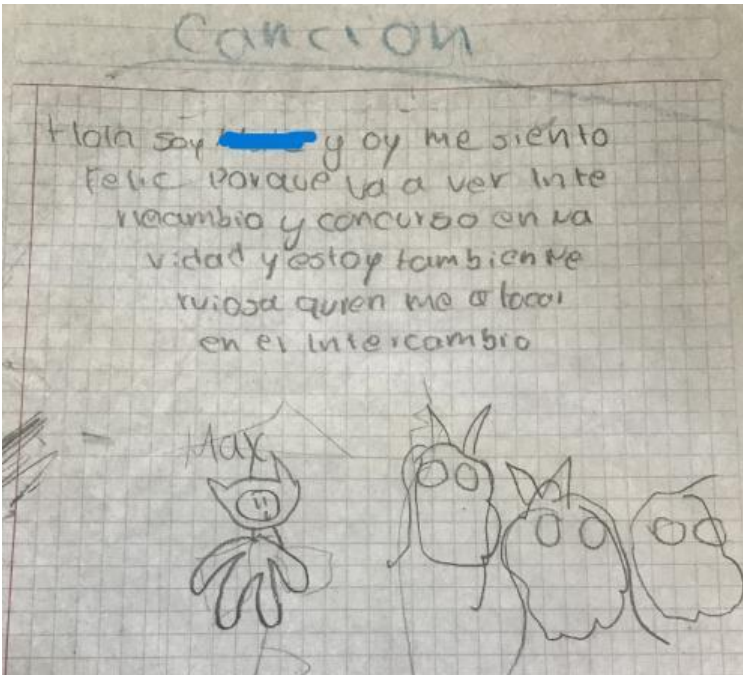 Cancion
Hola soy y oy me siento
Felic porque va a ver inte
recambio y concurso en na
vidad y estoy tambien ne
rviosa quien me a tocar
en el intercambio
Max